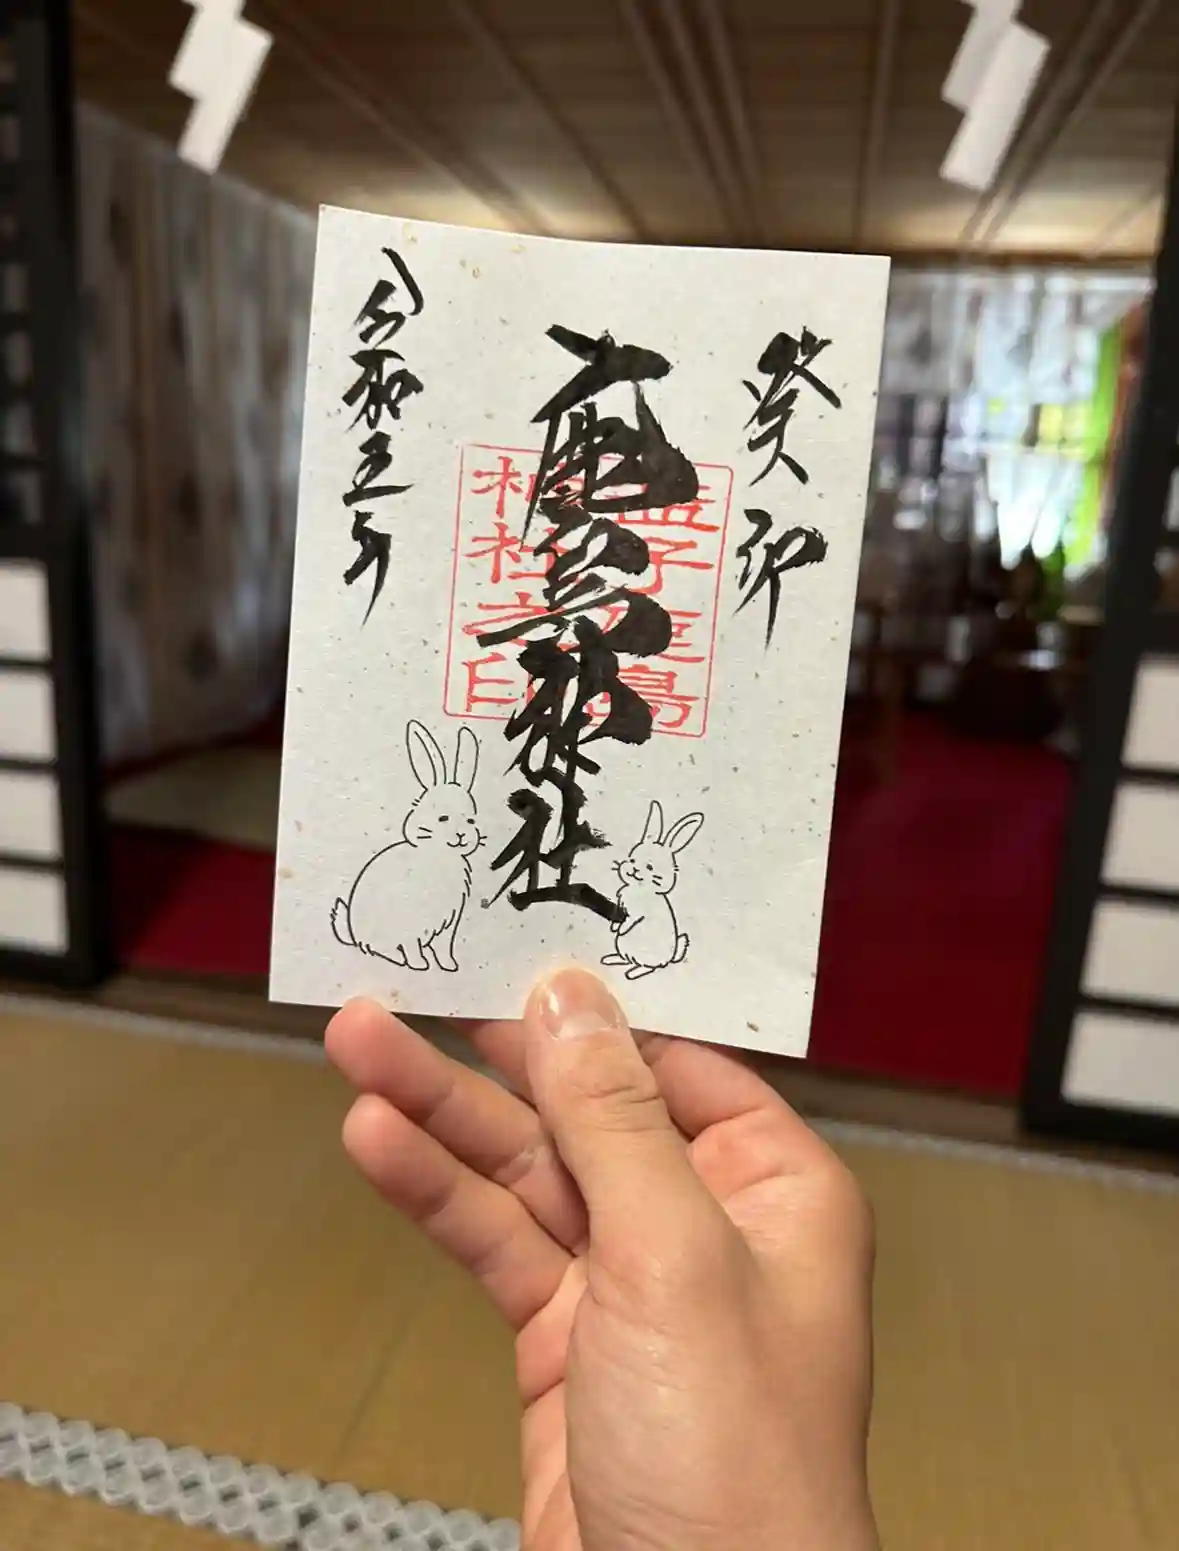 癸卯
鹿島神社
令和五年
益子鹿島
神社之印